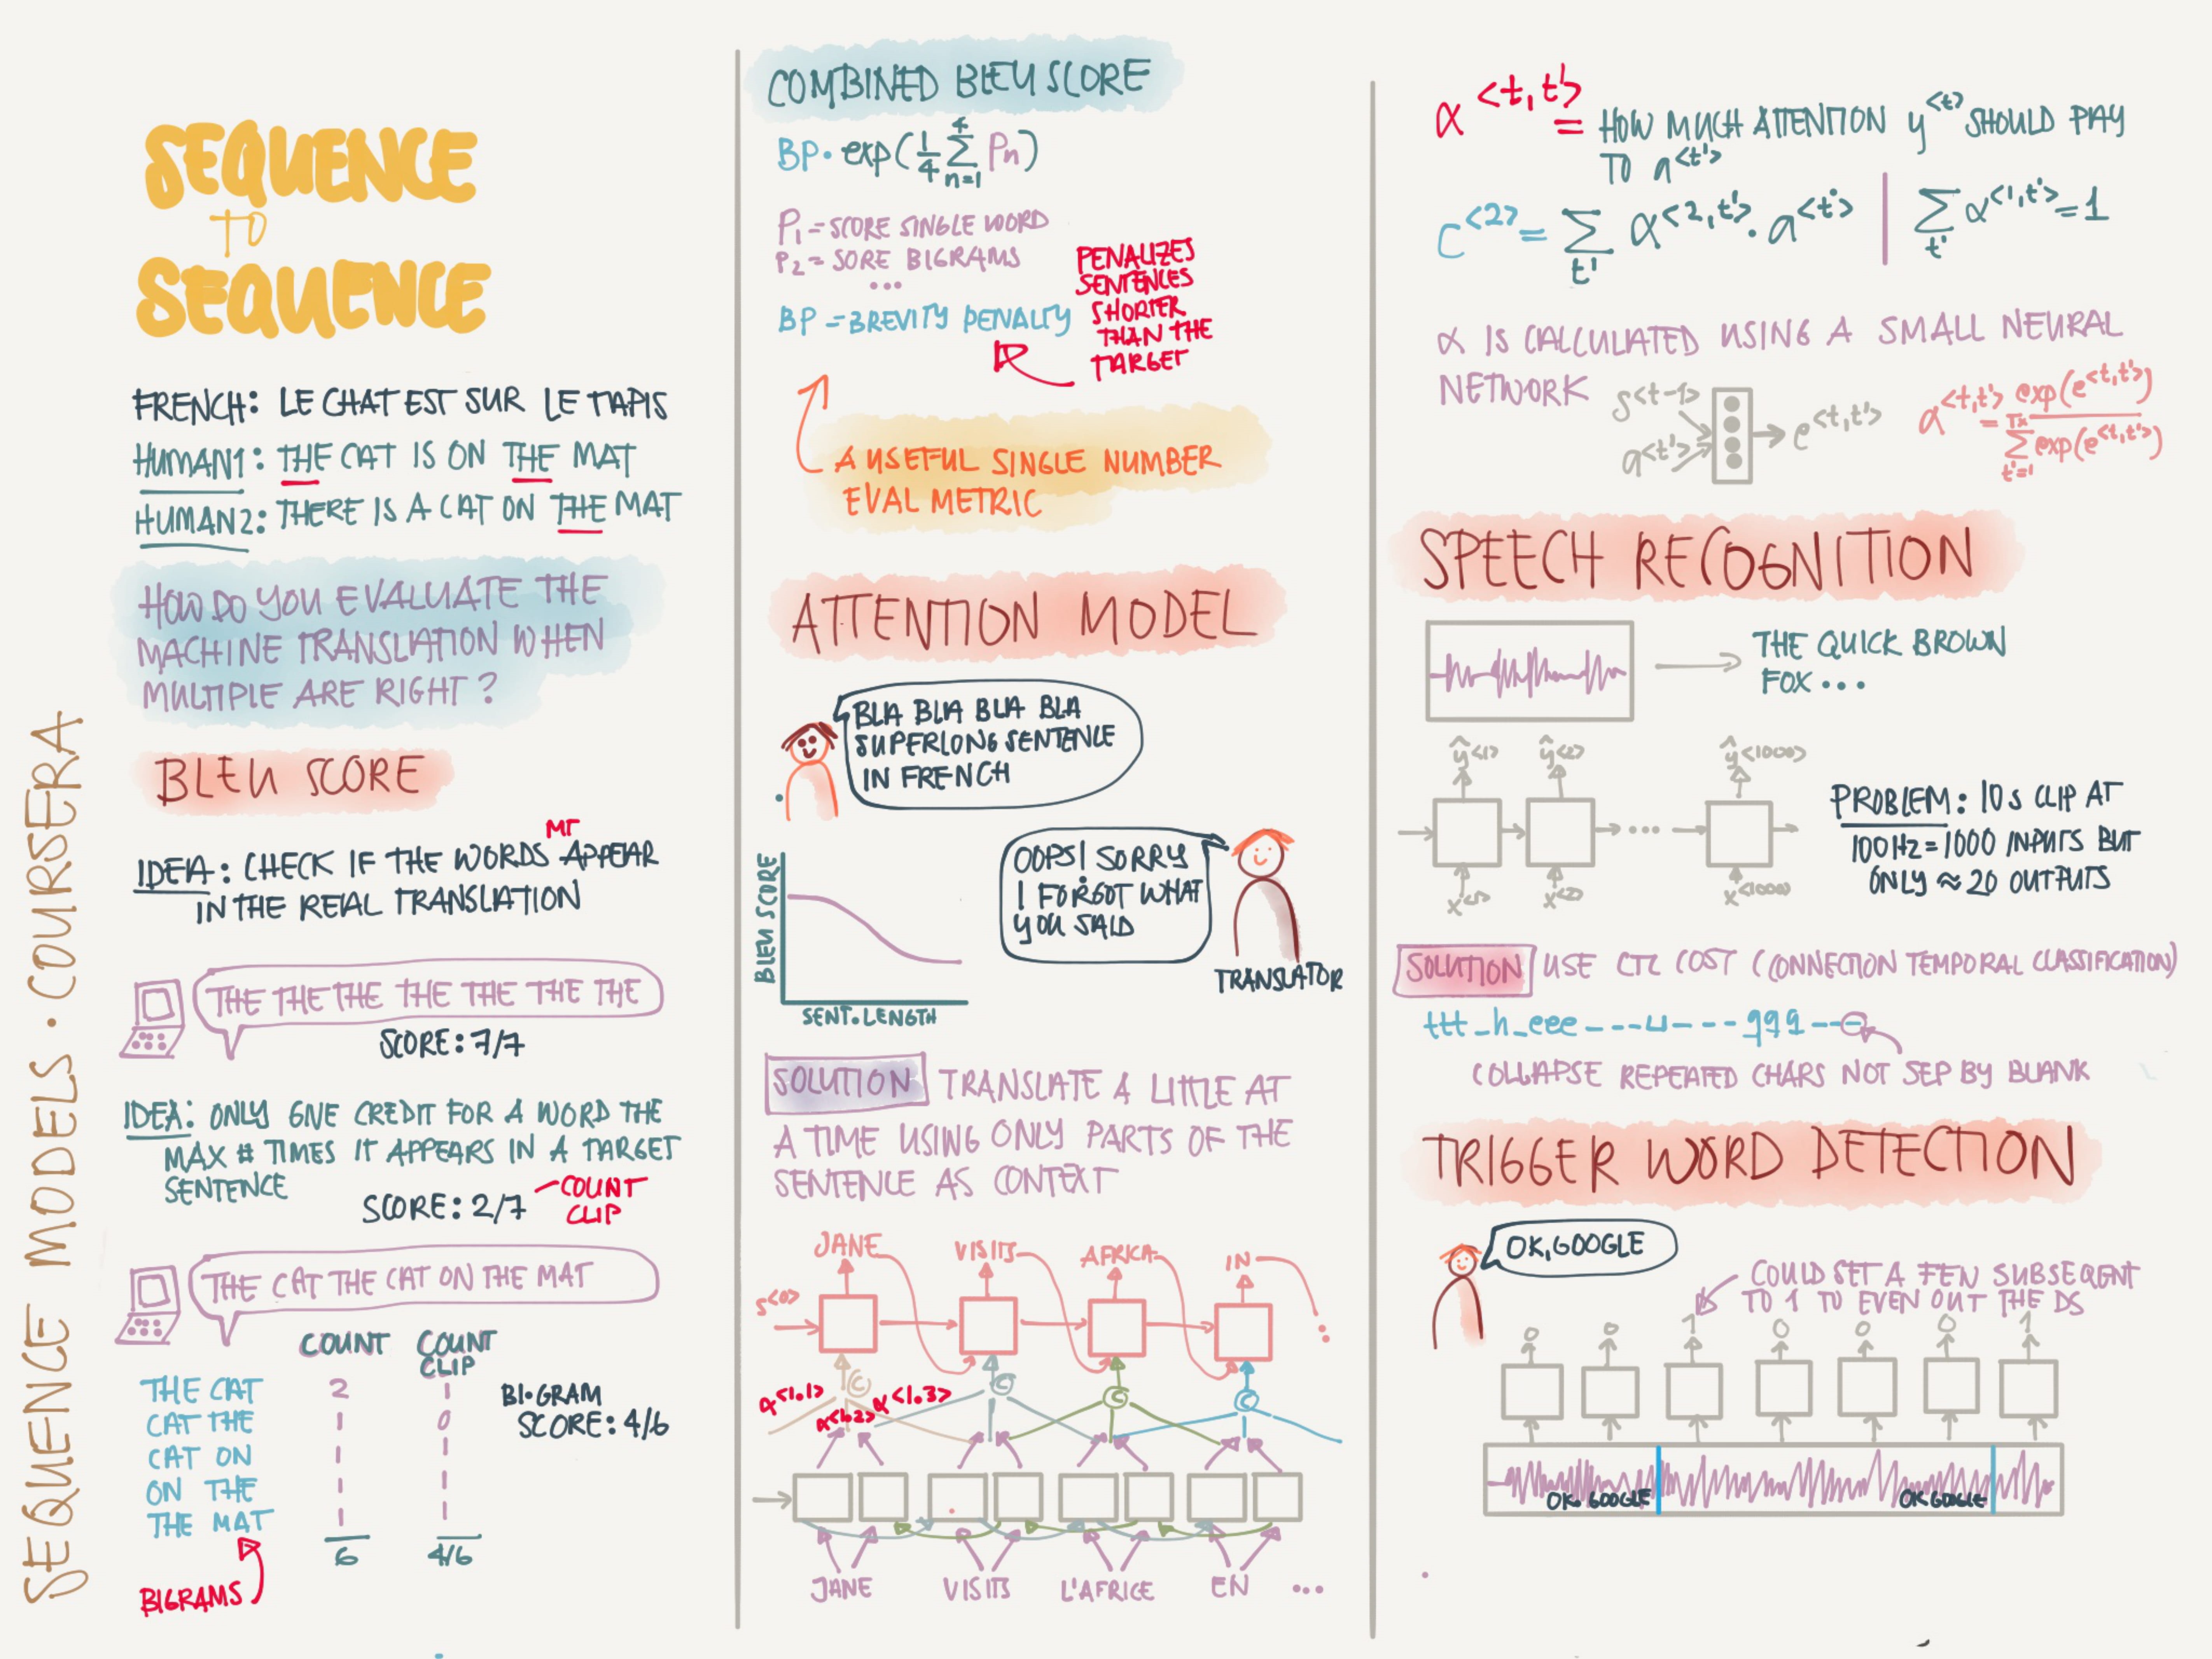 SEQUENCE MODELS · COURSERA
SEQUENCE
TO
SEQUENCE
FRENCH: LE CHAT EST SUR LE TAPIS
HUMAN1: THE CAT IS ON THE MAT
HUMAN2: THERE IS A CAT ON THE MAT
HOW DO YOU EVALUATE THE
MACHINE TRANSLATION WHEN
MULTIPLE ARE RIGHT?
BLEU SCORE
MT
IDEA: CHECK IF THE WORDS APPEAR
IN THE REAL TRANSLATION
THE THE THE THE THE THE THE
SCORE: 7/7
IDEA: ONLY GIVE CREDIT FOR A WORD THE
MAX # TIMES IT APPEARS IN A TARGET
SENTENCE
SCORE: 2/7
COUNT
CLIP
THE CAT THE CAT ON THE MAT
COUNT COUNT CLIP
THE CAT 2 1
CAT THE 1 0
CAT ON 1 1
ON THE 1 1
THE MAT 1 1
6 4/6
BI·GRAM
SCORE: 4/6
BIGRAMS
COMBINED BLEU SCORE
BP · exp(1/4 ∑ n=1 4 Pn)
P1 = SCORE SINGLE WORD
P2 = SORE BIGRAMS
...
BP = BREVITY PENALTY
PENALIZES
SENTENCES
SHORTER
THAN THE
TARGET
A USEFUL SINGLE NUMBER
EVAL METRIC
ATTENTION MODEL
BLA BLA BLA BLA
SUPERLONG SENTENCE
IN FRENCH
OOPS! SORRY
I FORGOT WHAT
YOU SAID
TRANSLATOR
BLEU SCORE
SENT. LENGTH
SOLUTION TRANSLATE A LITTLE AT
A TIME USING ONLY PARTS OF THE
SENTENCE AS CONTEXT
JANE VISITS AFRICA IN
S<0>
C C C C
α<1.1> α<1.2> α<1.3>
JANE VISITS L'AFRICE EN ...
α<t,t'> = HOW MUCH ATTENTION y<t> SHOULD PAY
TO a<t'>
C<2> = ∑t' α<2,t'> · a<t'> | ∑t' α<1,t'> = 1
α IS CALCULATED USING A SMALL NEURAL
NETWORK
S<t-1>
a<t'>
e<t,t'>
α<t,t'> = exp(e<t,t'>) / ∑ t'=1 Tx exp(e<t,t'>)
SPEECH RECOGNITION
THE QUICK BROWN
FOX ...
ŷ<1> ŷ<2> ŷ<1000>
...
x<1> x<2> x<1000>
PROBLEM: 10s CLIP AT
100Hz = 1000 INPUTS BUT
ONLY ≈ 20 OUTPUTS
SOLUTION USE CTC COST (CONNECTION TEMPORAL CLASSIFICATION)
ttt_h_eee---⊔---qqq--
COLLAPSE REPEATED CHARS NOT SEP BY BLANK
TRIGGER WORD DETECTION
OK, GOOGLE
COULD SET A FEW SUBSEQENT
TO 1 TO EVEN OUT THE DS
0 0 1 0 0 0 1
OK GOOGLE OK GOOGLE